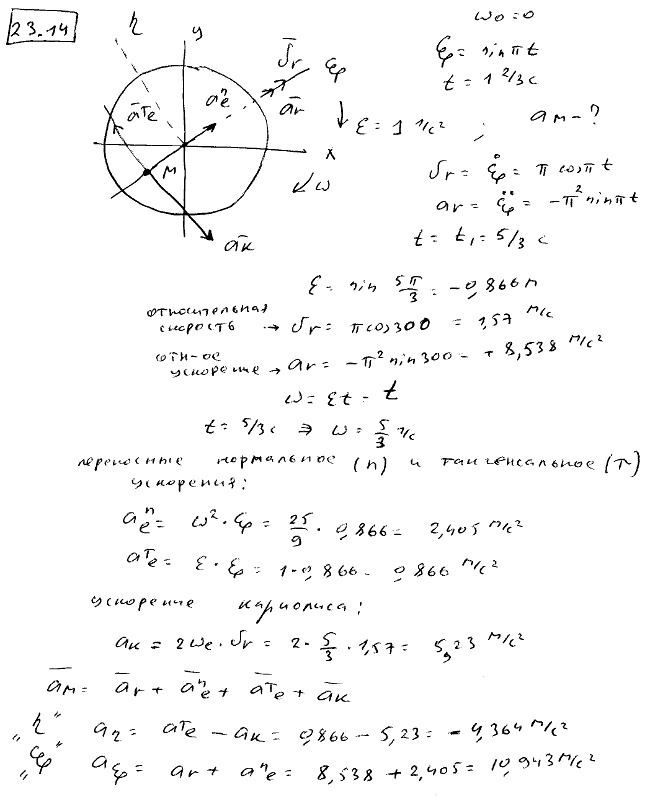 23.14
η y ω₀ = 0
v̄r ξ ξ = sin πt
āᵀe āⁿe ār t = 1 2/3 c
ε = 1 1/c² ; aм - ?
M x ω
āк
vr = ξ̇ = π cos πt
ar = ξ̈ = -π² sin πt
t = t₁ = 5/3 c
ξ = sin 5π/3 = -0,866 м
относительная
скорость → vr = π cos 300 = 1,57 м/с
отн-ое
ускорение → ar = -π² sin 300 = +8,538 м/с²
ω = εt = t
t = 5/3 c ⇒ ω = 5/3 1/c
переносные нормальное (n) и тангенсальное (τ)
ускорения:
aⁿe = ω² · ξ = 25/9 · 0,866 = 2,405 м/с²
aᵀe = ε · ξ = 1 · 0,866 = 0,866 м/с²
ускорение кариолиса:
aк = 2ωe · vr = 2 · 5/3 · 1,57 = 5,23 м/с²
āм = ār + āⁿe + āᵀe + āк
"η" aη = aᵀe - aк = 0,866 - 5,23 = -4,364 м/с²
"ξ" aξ = ar + aⁿe = 8,538 + 2,405 = 10,943 м/с²